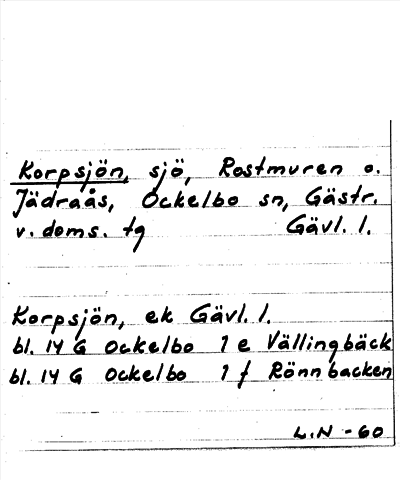 Korpsjön, sjö, Rostmuren o.
Jädraås, Ockelbo sn, Gästr.
v. doms. tg Gävl. l.
Korpsjön, ek Gävl. l.
bl. 14 G Ockelbo 1 e Vällingbäck
bl. 14 G Ockelbo 1 f Rönnbacken
L.N -60